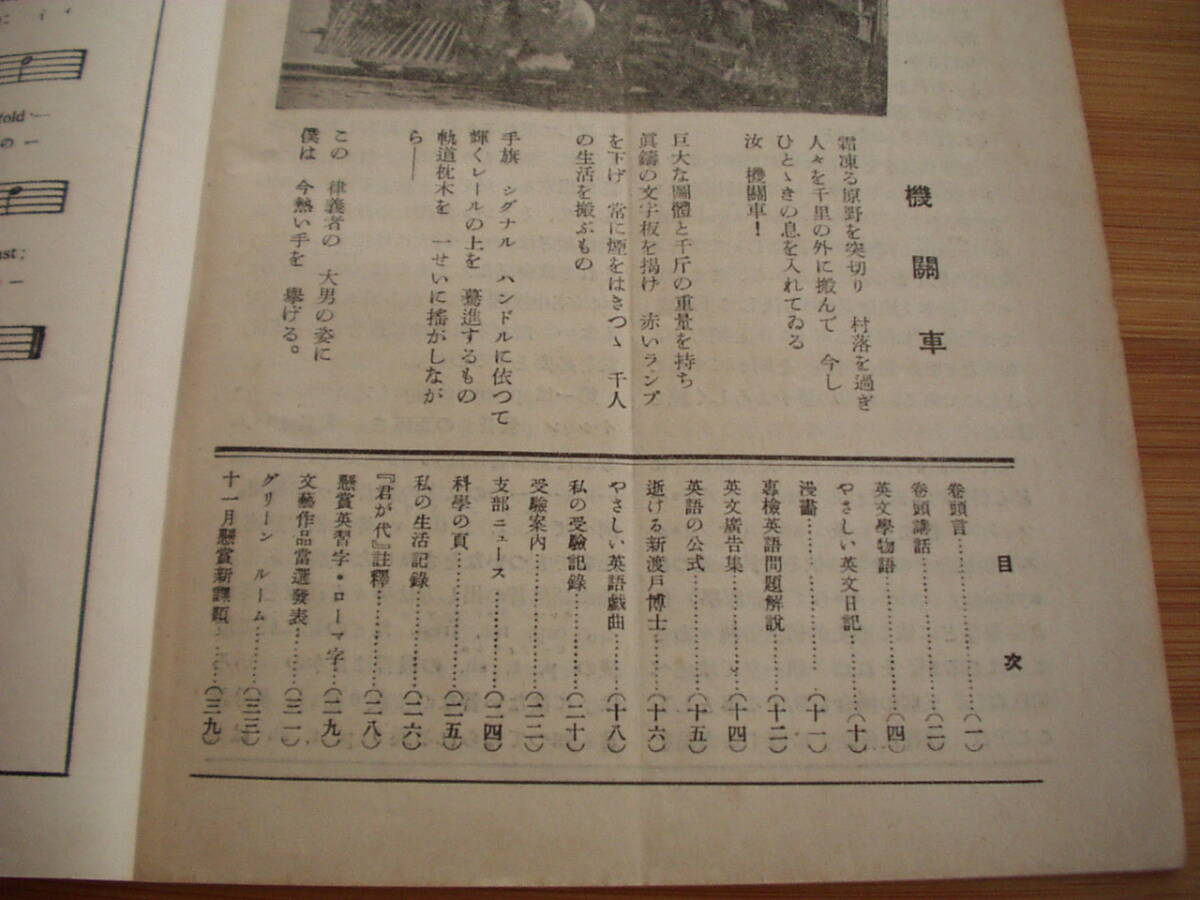 機關車
霜凍る原野を突切り 村落を過ぎ
人々を千里の外に搬んで 今し
ひとゝきの息を入れてゐる
汝 機關車!
巨大な圖體と千斤の重量を持ち
眞鑄の文字板を揭げ 赤いランプ
を下げ 常に煙をはきつゝ 千人
の生活を搬ぶもの
手旗 シグナル ハンドルに依つて
輝くレールの上を 驀進するもの
軌道枕木を 一せいに搖がしなが
ら――
この 律義者の 大男の姿に
僕は 今熱い手を 擧げる。
目次
卷頭言…………(一)
卷頭講話…………(二)
英文學物語…………(四)
やさしい英文日記…………(十)
漫畵…………(十一)
專檢英語問題解說…………(十二)
英文廣告集…………(十四)
英語の公式…………(十五)
逝ける新渡戶博士…………(十六)
やさしい英語戲曲…………(十八)
私の受驗記錄…………(二十)
受驗案內…………(二二)
支部ニュース…………(二四)
科學の頁…………(二五)
私の生活記錄…………(二六)
『君が代』註釋…………(二八)
懸賞英習字・ローマ字…………(二九)
文藝作品當選發表…………(三一)
グリーン ルーム…………(三三)
十一月懸賞新課題…………(三九)
fold
の ー